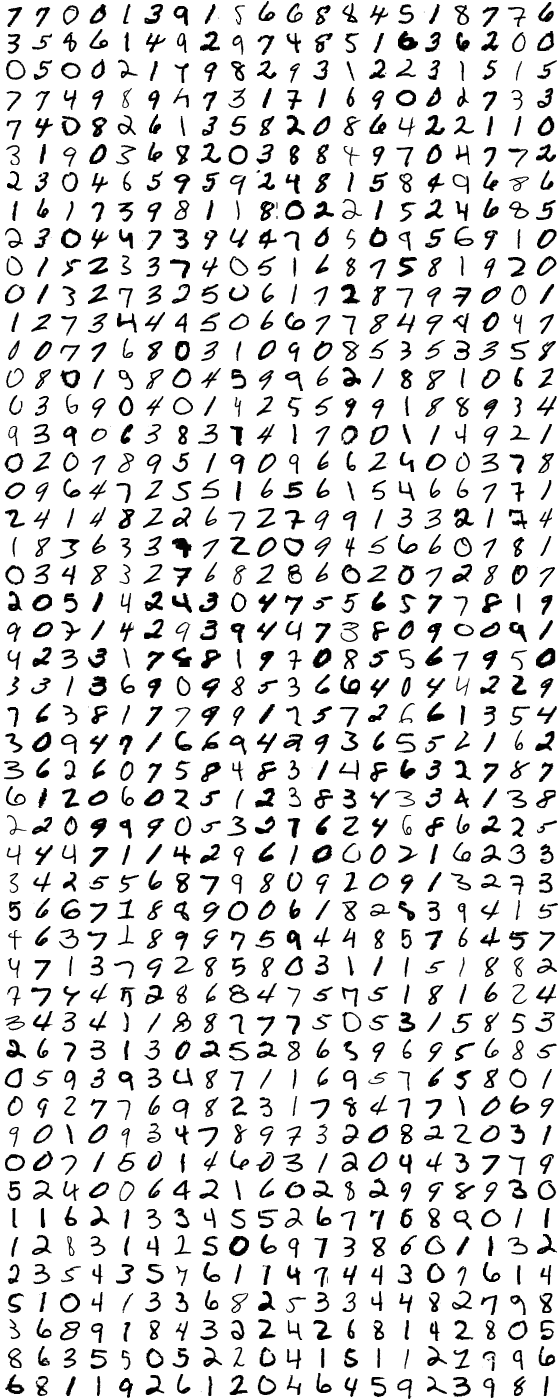 7 7 0 0 1 3 9 1 5 6 6 8 8 4 5 1 8 7 7 6
3 5 8 6 1 4 9 2 9 7 4 8 5 1 6 3 6 2 0 0
0 5 0 0 2 1 9 9 8 2 9 3 1 2 2 3 1 5 1 5
7 7 4 9 8 9 4 7 3 1 7 1 6 9 0 0 2 7 3 3
7 4 0 8 2 6 1 3 5 8 2 0 8 6 4 2 2 1 1 0
3 1 9 0 3 6 8 2 0 3 8 8 4 9 7 0 4 7 7 2
2 3 0 4 6 5 9 5 9 2 4 8 1 5 8 4 9 6 8 6
1 6 1 7 3 9 8 1 1 8 0 2 2 2 1 5 2 4 6 8 5
2 3 0 4 4 7 3 9 4 4 7 0 5 0 9 5 6 9 1 0
0 1 5 2 3 3 7 4 0 5 1 6 8 7 5 8 1 9 2 0
0 1 3 2 7 3 2 5 0 6 1 7 2 8 7 9 7 0 0 1
1 2 7 3 4 4 4 5 0 6 6 7 7 8 4 9 9 0 4 7
0 0 7 7 6 8 0 3 1 0 9 0 8 5 3 5 3 3 5 8
0 8 0 1 9 8 0 4 5 9 9 6 2 1 8 8 1 0 6 2
6 3 6 9 0 4 0 1 4 2 5 5 9 9 1 8 8 9 3 4
9 3 9 0 6 3 8 3 7 4 1 7 0 0 1 1 4 9 2 1
0 2 0 7 8 9 5 1 9 0 9 6 6 2 4 0 0 3 7 8
0 9 6 4 7 2 5 5 1 6 5 6 1 5 4 6 6 7 7 1
2 4 1 4 8 2 2 6 7 2 7 9 9 1 3 3 2 1 7 4
1 8 3 6 3 3 9 7 2 0 0 9 4 5 6 6 0 7 8 1
0 3 4 8 3 2 7 6 8 2 8 6 0 2 0 7 2 8 0 7
2 0 5 1 4 2 4 3 0 4 7 5 5 6 5 7 7 8 1 9
9 0 7 1 4 2 9 3 9 4 4 7 3 8 0 9 0 0 9 1
4 2 3 3 1 7 6 8 1 9 7 0 8 5 5 6 7 9 5 0
3 3 1 3 6 9 0 9 8 5 3 6 6 4 0 4 4 2 2 9
7 6 3 8 1 7 7 9 9 1 2 5 7 2 6 6 1 3 5 4
3 0 9 4 7 1 6 6 9 4 2 9 3 6 5 5 2 1 6 2
3 6 2 6 0 7 5 8 4 8 3 1 4 8 6 3 2 7 8 7
6 1 2 0 6 0 2 5 1 2 3 8 3 4 3 3 4 1 3 8
2 2 0 9 9 9 0 5 3 2 7 6 2 4 6 8 6 2 2 5
4 4 4 7 1 1 4 2 9 6 1 0 0 0 2 1 6 2 3 3
3 4 2 5 5 6 8 7 9 8 0 9 2 0 9 1 3 2 7 3
5 6 6 7 1 8 8 9 0 0 6 1 8 2 8 3 9 4 1 5
4 6 3 7 1 8 9 9 7 5 9 4 4 8 5 7 6 4 5 7
4 7 1 3 7 9 2 8 5 8 0 3 1 1 1 5 1 8 8 2
7 7 4 4 5 2 8 6 8 4 7 5 7 5 1 8 1 6 2 4
3 4 3 4 1 1 8 8 7 7 7 5 0 5 3 1 5 8 5 3
2 6 7 3 1 3 0 2 5 2 8 6 3 9 6 9 5 6 8 5
0 5 9 3 9 3 4 8 7 1 1 6 9 5 7 6 5 8 0 1
0 9 2 7 7 6 9 8 2 3 1 7 8 4 7 7 1 0 6 9
9 0 1 0 9 3 4 7 8 9 7 3 2 0 8 2 2 0 3 1
0 0 7 1 5 0 1 4 6 0 3 1 2 0 4 4 3 7 7 9
5 2 4 0 0 6 4 2 1 6 0 2 8 2 9 9 8 9 3 0
1 1 6 2 1 3 3 4 5 5 2 6 7 7 6 8 9 0 1 1
1 2 8 3 1 4 2 5 0 6 9 7 3 8 6 0 1 1 3 2
2 3 5 4 3 5 7 6 1 1 4 7 4 4 3 0 7 6 1 4
5 1 0 4 1 3 3 6 8 2 5 3 3 4 4 8 2 7 9 8
3 6 8 9 1 8 4 3 2 2 4 2 6 8 1 4 2 8 0 5
8 6 3 5 5 0 5 2 2 0 4 1 5 1 1 2 7 9 9 6
6 8 1 1 9 2 6 1 2 0 4 6 4 5 9 2 3 9 8 1